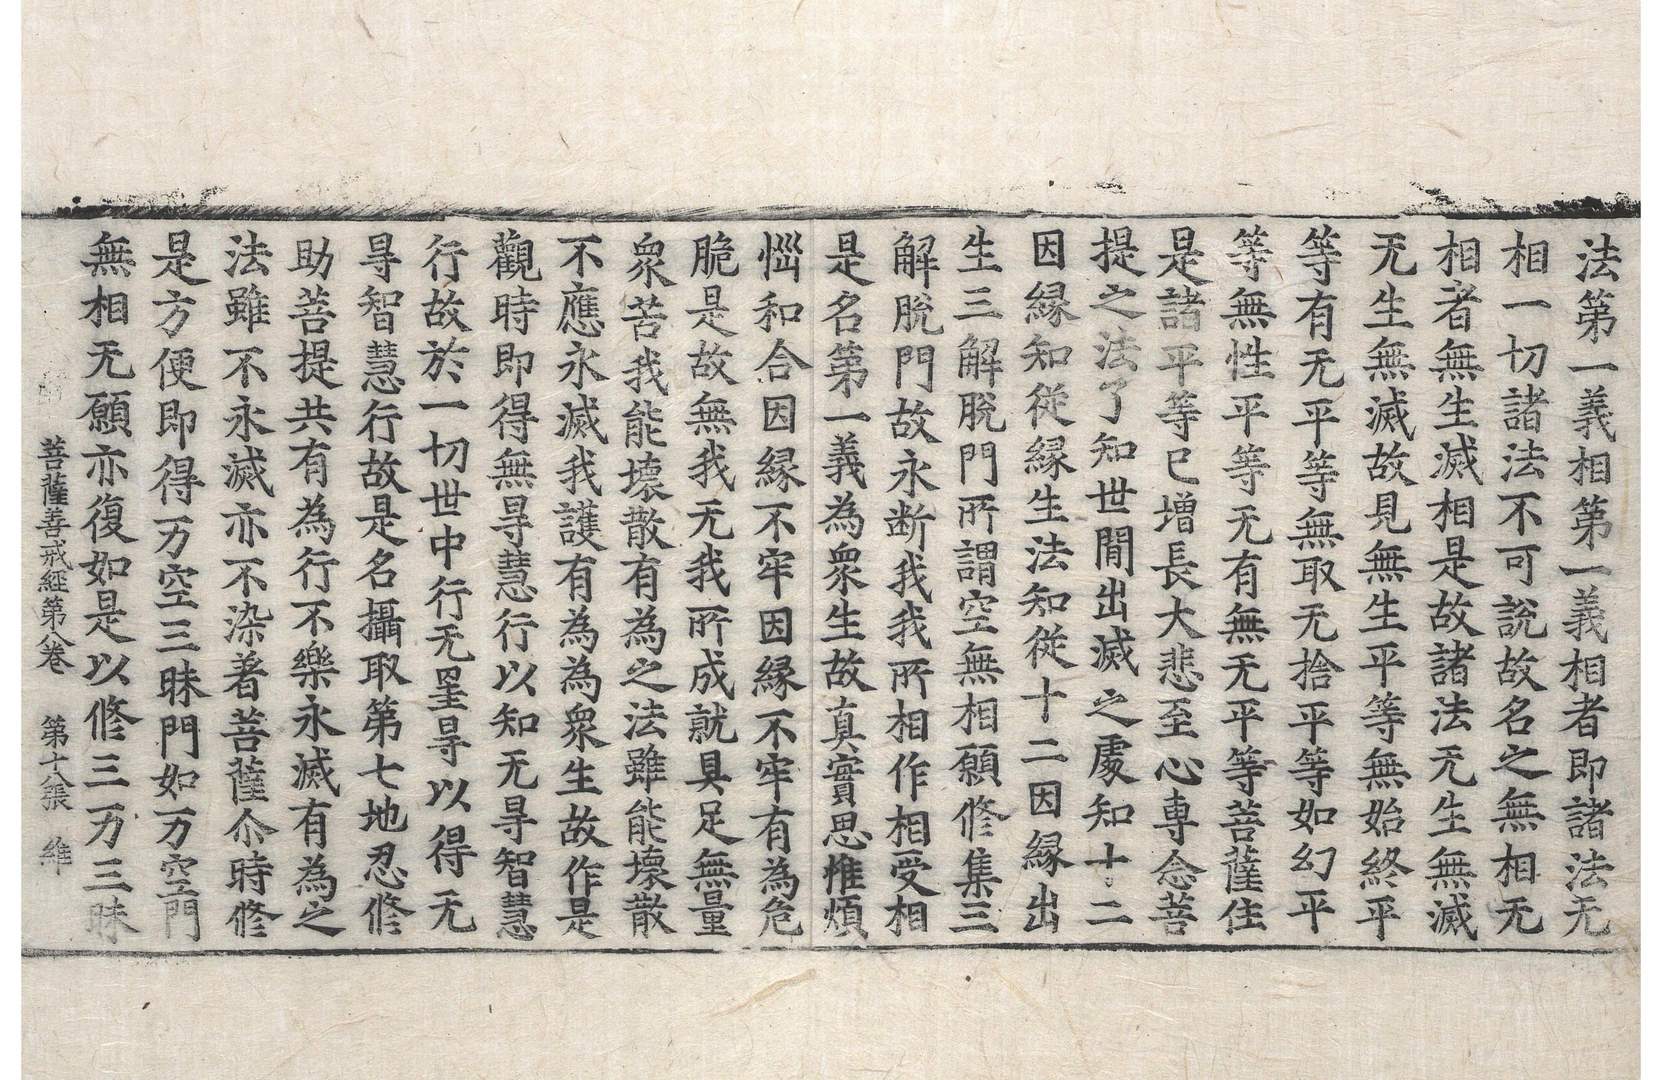 法第一義相第一義相者即諸法无
相一切諸法不可說故名之無相无
相者無生滅相是故諸法无生無滅
无生無滅故見無生平等無始終平
等有无平等無取无捨平等如幻平
等無性平等无有無无平等菩薩住
是諸平等已增長大悲至心專念菩
提之法了知世間出滅之處知十二
因縁知從縁生法知從十二因縁出
生三解脫門所謂空無相願修集三
解脫門故永断我我所相作相受相
是名第一義為衆生故真實思惟煩
惱和合因縁不牢因縁不牢有為危
脆是故無我无我所成就具足無量
衆苦我能壞散有為之法雖能壞散
不應永滅我護有為為衆生故作是
觀時即得無㝵慧行以知无㝵智慧
行故於一切世中行无罣㝵以得无
㝵智慧行故是名攝取第七地忍修
助菩提共有為行不樂永滅有為之
法雖不永滅亦不染著菩薩尒時修
是方便即得万空三昧門如万空門
無相无願亦復如是以修三万三昧
菩薩善戒經第八卷　第十八張　維